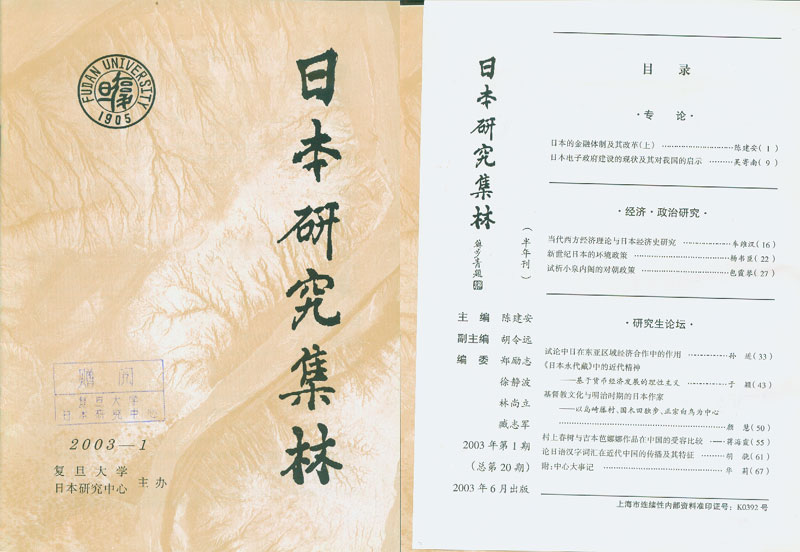 FUDAN UNIVERSITY
1905
日本研究集林
赠阅
复旦大学
日本研究中心
2003—1
复旦大学
日本研究中心 主办
日本研究集林
(半年刊)
蘇步青題
主编 陈建安
副主编 胡令远
编委 郑励志
徐静波
林尚立
臧志军
2003年第1期
(总第20期)
2003年6月出版
目录
·专论·
日本的金融体制及其改革(上) ……………… 陈建安(1)
日本电子政府建设的现状及其对我国的启示 ……… 吴寄南(9)
·经济·政治研究·
当代西方经济理论与日本经济史研究 ……… 车维汉(16)
新世纪日本的环境政策 ……………… 杨书臣(22)
试析小泉内阁的对朝政策 ……………… 包霞琴(27)
·研究生论坛·
试论中日在东亚区域经济合作中的作用 ……… 孙(33)
《日本永代藏》中的近代精神
——基于货币经济发展的理性主义 ……… 于(43)
基督教文化与明治时期的日本作家
——以岛崎藤村、国木田独步、正宗白鸟为中心
……………… 颜慧(50)
村上春树与吉本芭娜娜作品在中国的受容比较 …… 蒋海霞(55)
论日语汉字词汇在近代中国的传播及其特征 …… 胡(61)
附:中心大事记 ……………… 华莉(67)
上海市连续性内部资料准印证号:K0392号